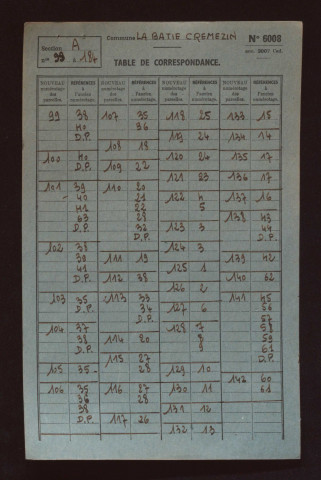 Section A
nos 99 à 187
Commune LA BATIE CREMEZIN
N° 6008
TABLE DE CORRESPONDANCE.
NOUVEAU numérotage des parcelles. RÉFÉRENCES à l'ancien numérotage. NOUVEAU numérotage des parcelles. RÉFÉRENCES à l'ancien numérotage. NOUVEAU numérotage des parcelles. RÉFÉRENCES à l'ancien numérotage. NOUVEAU numérotage des parcelles. RÉFÉRENCES à l'ancien numérotage.
99 38
40
D.P.
100 40
D.P.
101 39
40
41
63
D.P.
102 38
30
41
D.P.
103 35
D.P.
104 37
38
D.P.
105 35
106 35
36
38
D.P.
107 35
36
108 18
D.P.
109 22
110 20
21
22
28
32
D.P.
111 19
112 38
113 33
34
D.P.
114 20
115 27
28
116 27
28
117 26
118 25
119 24
120 24
121 23
122 4
5
123 3
124 3
125 1
126 2
127 6
128 7
8
9
129 10
130 11
131 12
132 13
133 15
134 14
135 17
136 17
137 16
138 43
44
D.P.
139 42
140 62
141 45
56
57
58
59
61
D.P.
142 60
61